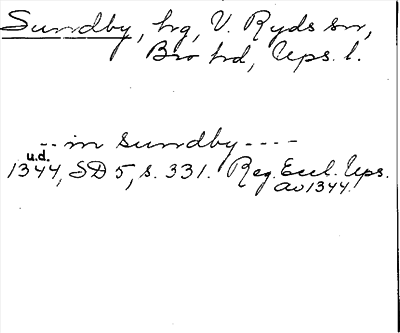 Sundby, hg, V. Ryds sn,
Bro hd, Ups. l.
-- in sundby ----
u.d.
1344, SD 5, s. 331. Reg. Eccl. Ups.
av 1344.